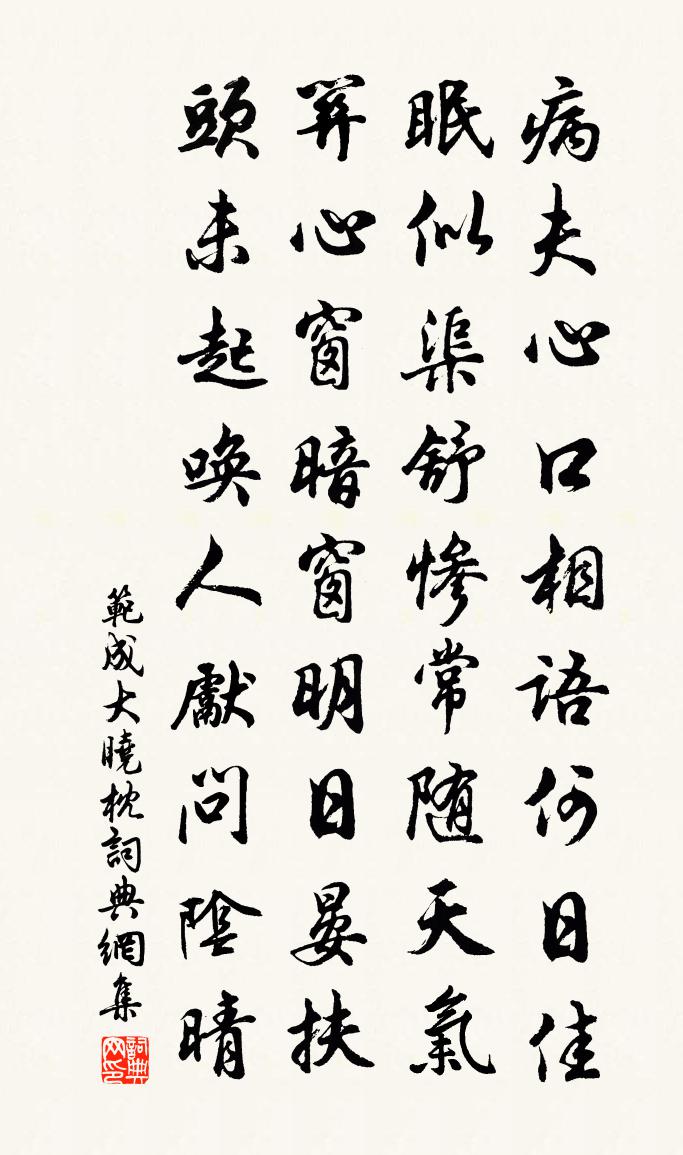 病夫心口相語何日佳
眠似渠舒慘常随天氣
關心窗暗窗明日晏扶
頭未起喚人獻問陰晴
範成大曉枕詞典網集
詞典网印